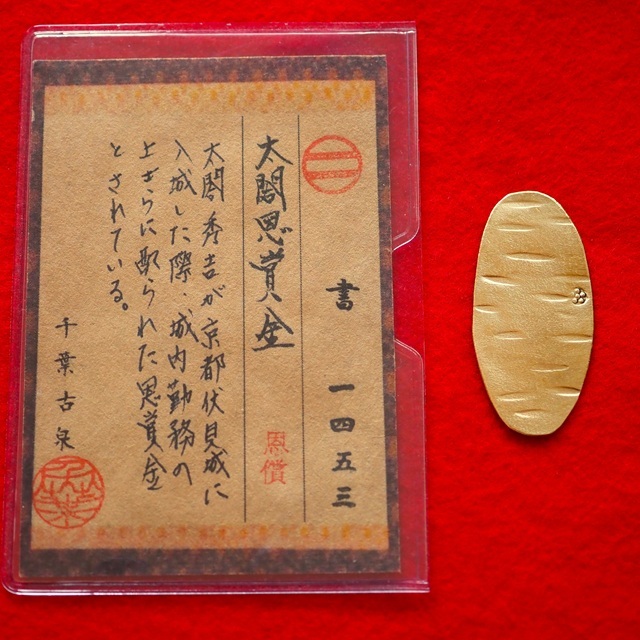 書 一四五三
太閤恩賞金
恩償
太閤秀吉が京都伏見城に
入城した際、城内勤務の
上士らに配られた恩賞金
とされている。
千葉古泉